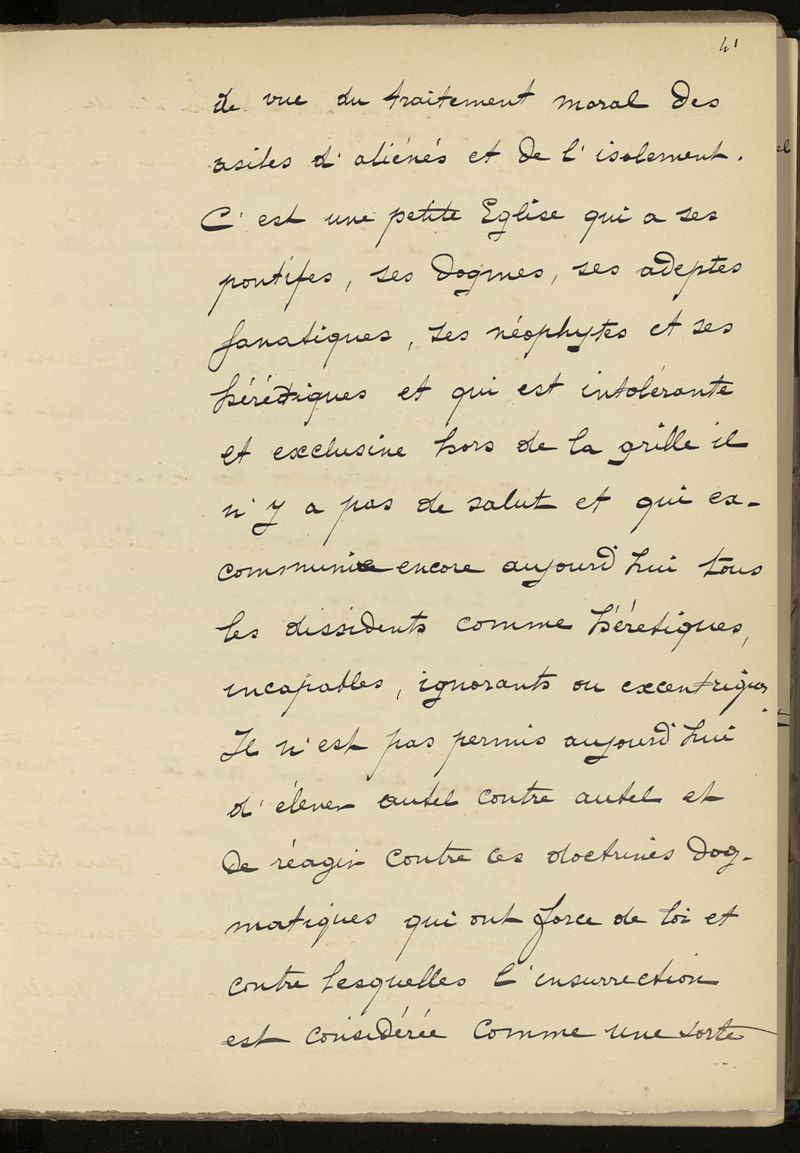 41
de vue du traitement moral des
asiles d'aliénés et de l'isolement.
C'est une petite Eglise qui a ses
pontifes, ses dogmes, ses adeptes
fanatiques, ses néophytes et ses
hérétiques et qui est intolérante
et exclusive hors de la grille il
n'y a pas de salut et qui ex-
communie encore aujourd'hui tous
les dissidents comme hérétiques,
incapables, ignorants ou excentriques.
Il n'est pas permis aujourd'hui
d'élever autel contre autel et
de réagir contre ces doctrines dog-
matiques qui ont force de loi et
contre lesquelles l'insurrection
est considérée comme une sorte